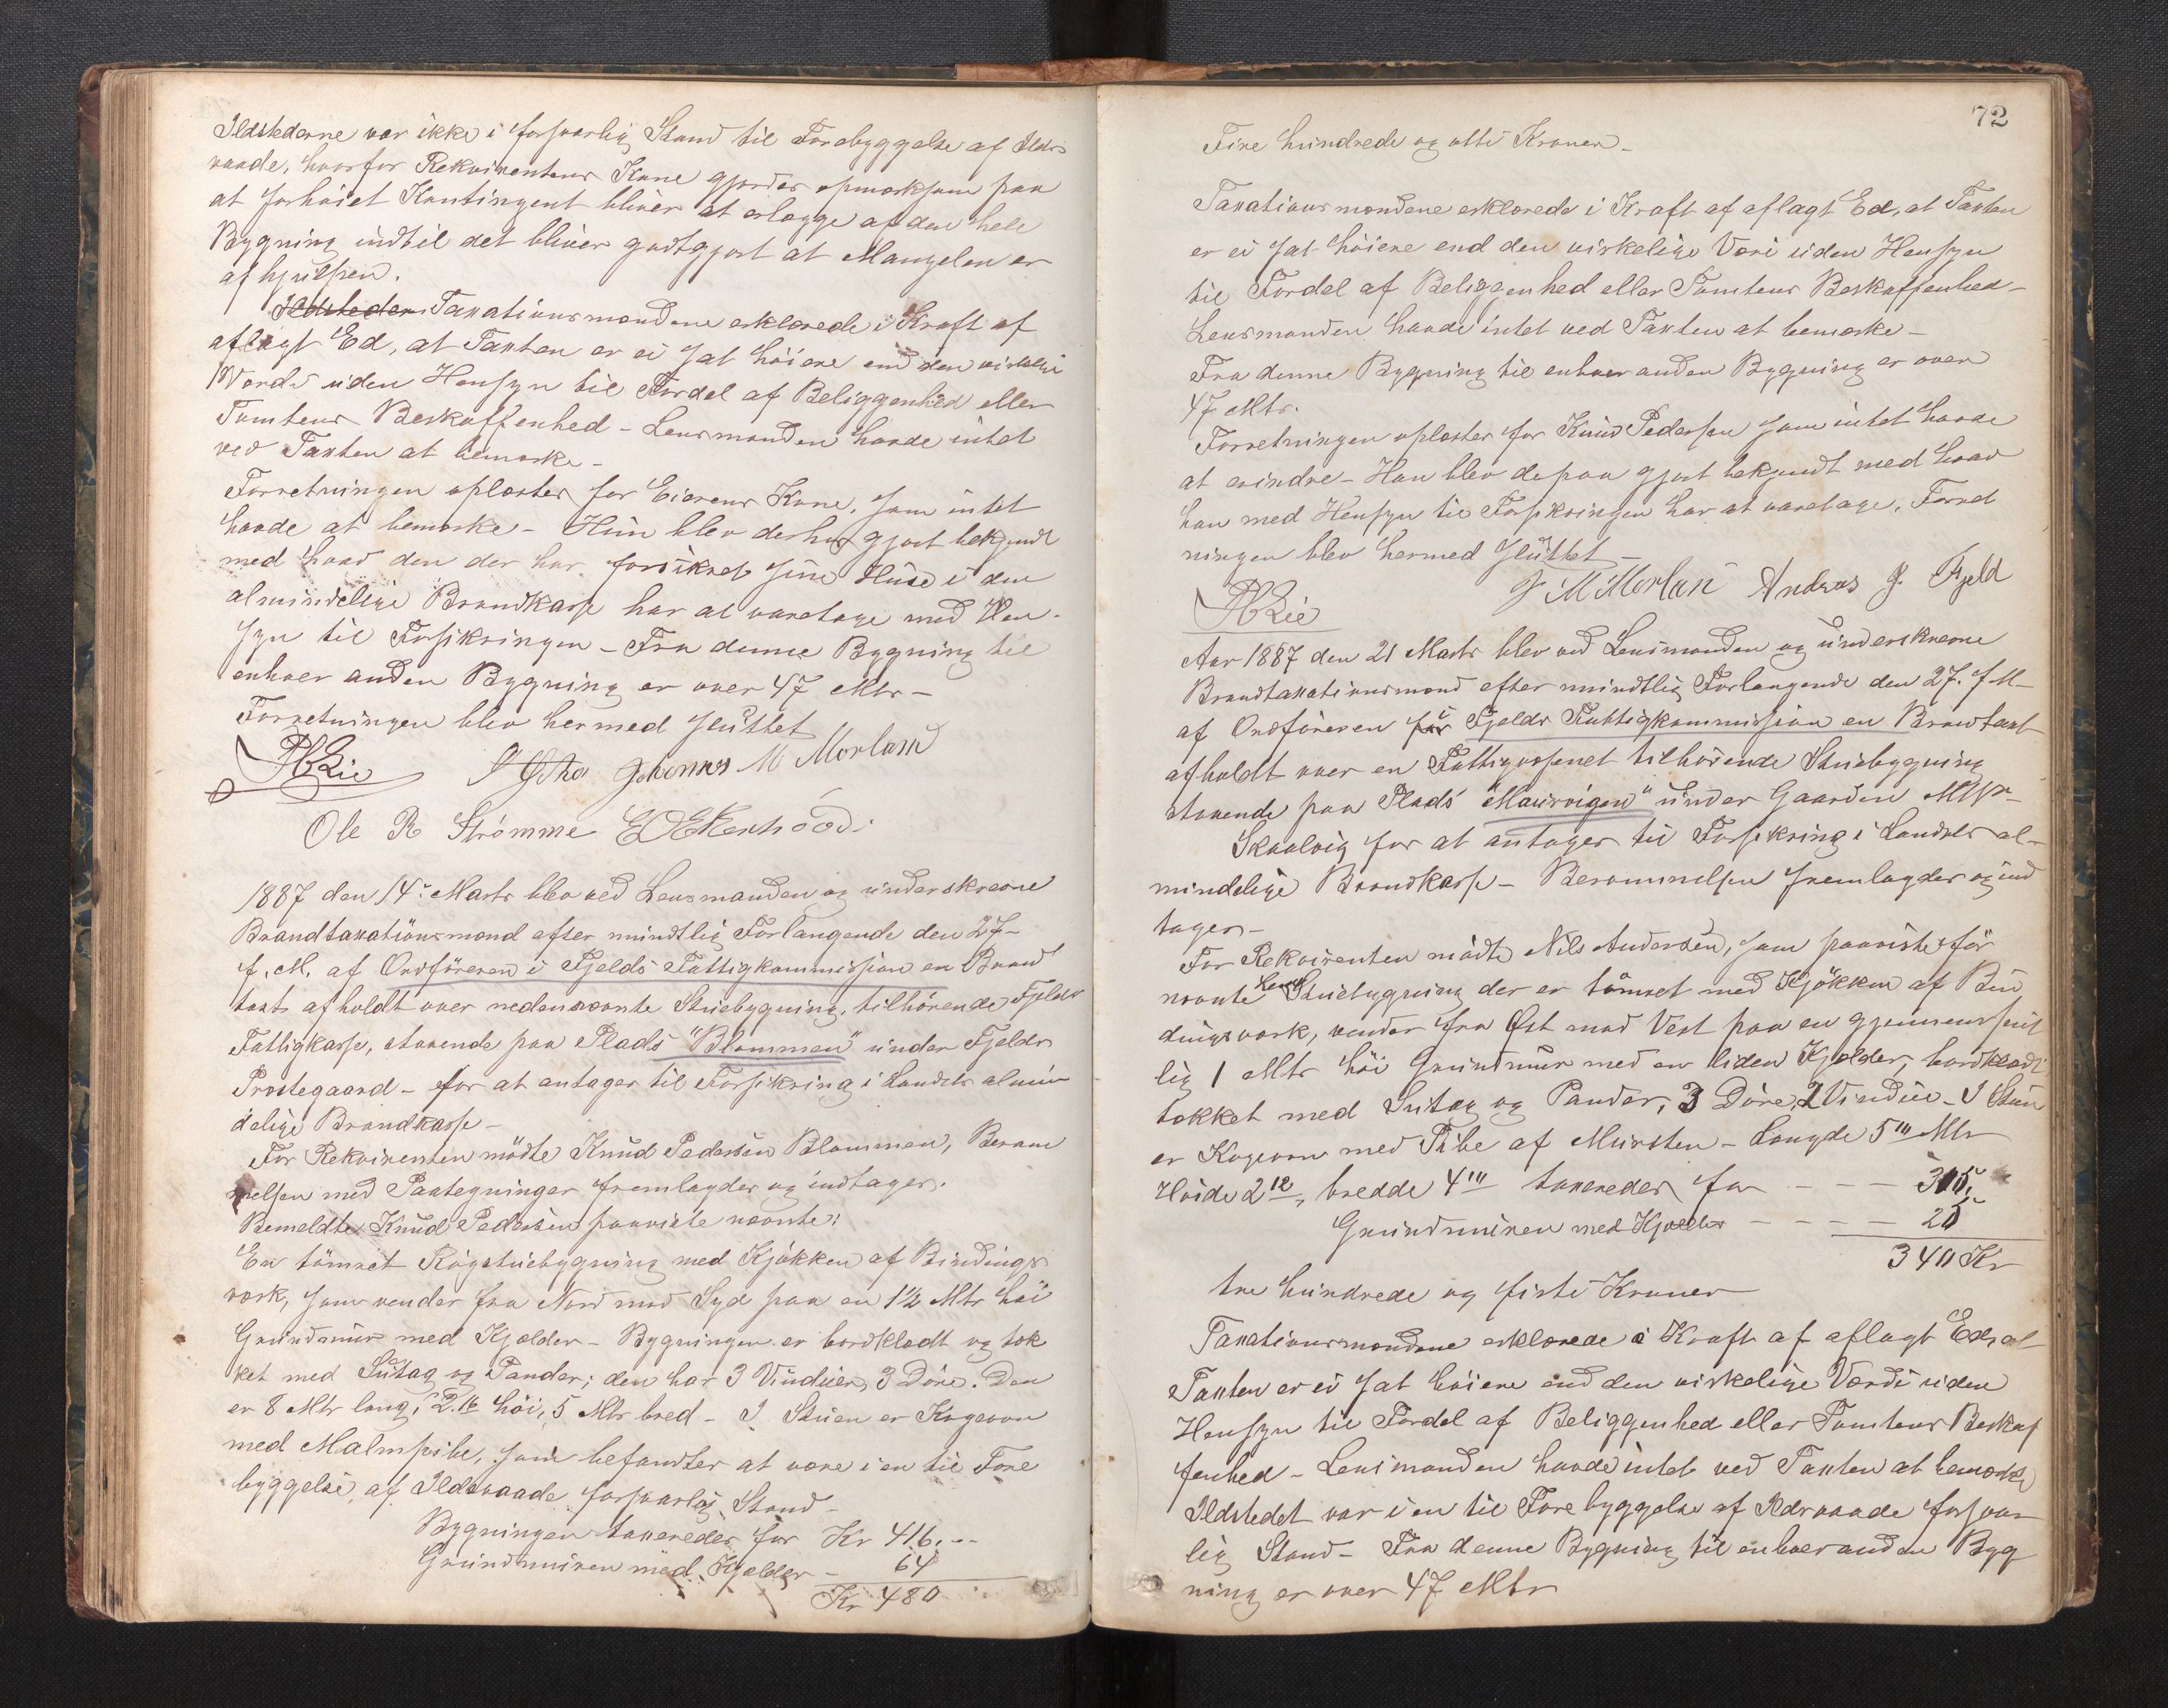 Ildstederne var ikke i forsvarlig Stand til Forebyggelse af Ilds
vaade, hvorfor Rekvirentens Kone gjordes opmærksom paa
at forhøiet Kontingent bliver at erlægge af den hele
Bygning indtil det bliver godtgjort at Mangelen er
afhjulpen.
Ildstederne Taxationsmændene erklærede i Kraft af
aflagt Ed, at Taxten er ei sat høiere end den virkelige
Værdi uden Hensyn til Fordel af Beliggenhed eller
Tomtens Beskaffenhed - Lensmanden havde intet
ved Taxten at bemærke -
Forretningen oplæstes for Eierens Kone, som intet
havde at bemærke - Hun blev derhos gjort bekjendt
med hvad den der har forsikret sine Huse i den
almindelige Brandkasse har at varetage med Hen-
syn til Forsikringen - Fra denne Bygning til
enhver anden Bygning er over 47 Mtr -
Forretningen blev hermed sluttet
Johannes M Morland
Ole R Strömme
1887 den 14: Marts blev ved Lensmanden og underskrevne
Brandtaxationsmænd efter mundtlig Forlangende den 27-
f. M. af Ordföreren i Fjelds Fattigkommission en Brand
taxt afholdt over nedennævnte Stuebygning, tilhörende Fjelds
Fattigkasse, staaende paa Plads "Blommen" under Fjelds
Prestegaard - for at antages til Forsikring i Landets almin
delige Brandkasse -
For Rekvirenten mödte Knud Pedersen Blommen, Beram
melsen med Paategninger fremlagdes og indtages.
Bemeldte Knud Pedersen paaviste nævnte:
En tömret Rögstuebygning med Kjökken af Bindings
værk, som vender fra Nord mod Syd paa en 1½ Mtr höi
Grundmur med Kjælder - Bygningen er bordklædt og tæk
ket med Sutag og Pander; den har 3 Vinduer, 3 Döre. Den
er 8 Mtr lang, 2.16 höi, 5 Mtr bred - I Stuen er Kogeovn
med Malmpibe, som befandtes at være i en til Fore
byggelse af Ildsvaade forsvarlig Stand -
Bygningen taxeredes for Kr 416. --
Grundmuren med Kjælder - 64
Kr 480
72
Fire hundrede og otti Kroner -
Taxationsmændene erklærede i Kraft af aflagt Ed, at Taxten
er ei sat höiere end den virkelige Væri uden Hensyn
til Fordel af Beliggenhed eller Tomtens Beskaffenhed -
Lensmanden havde intet ved Taxten at bemærke -
Fra denne Bygning til enhver anden Bygning er over
47 Mtr.
Forretningen oplæstes for Knud Pedersen som intet havde
at erindre - Han blev depaa gjort bekjendt med hvad
han med Hensyn til Forsikringen har at varetage. Forret
ningen blev hermed sluttet -
J M Morland Andreas J. Fjeld
Aar 1887 den 21 Marts blev ved Lensmanden og underskrevne
Brandtaxationsmænd efter mundtlig Forlangende den 27. f M -
af Ordföreren i Fjelds Fattigkommission en Brandtaxt
afholdt over en Fattigvæsenet tilhörende Stuebygning
staaende paa Plads "Maurvigen" under Gaarden
Skaalvig for at antages til Forsikring i Landets al-
mindelige Brandkasse - Berammelsen fremlagdes og ind
tages -
For Rekvirenten mödte Nils Andersen, som paaviste för
nævnte Stuebygning der er tömret med Kjökken af Bin
dingsværk, vender fra Øst mod Vest paa en gjennemsnit
lig 1 Mtr höi Grundmur med en liden Kjælder, bordklædt
tækket med Sutag og Pander, 3 Döre, 2 Vindue - I Stuen
er Kogeovn med Pibe af Mursten - Længde 5 Mtr
Höide 2.12, bredde 4 taxeredes for - - - 315,
Grundmuren med Kjælder - - - - 25
340 Kr
tre hundrede og firti Kroner
Taxationsmændene erklærede i Kraft af aflagt Ed, at
Taxten er ei sat höiere end den virkelige Værdi uden
Hensyn til Fordel af Beliggenhed eller Tomtens Beskaf
fenhed - Lensmanden havde intet ved Taxten at bemærke
Ildstedet var i en til Forebyggelse af Ildsvaade forsvar
lig Stand - Fra denne Bygning til enhver anden Byg
ning er over 47 Mtr